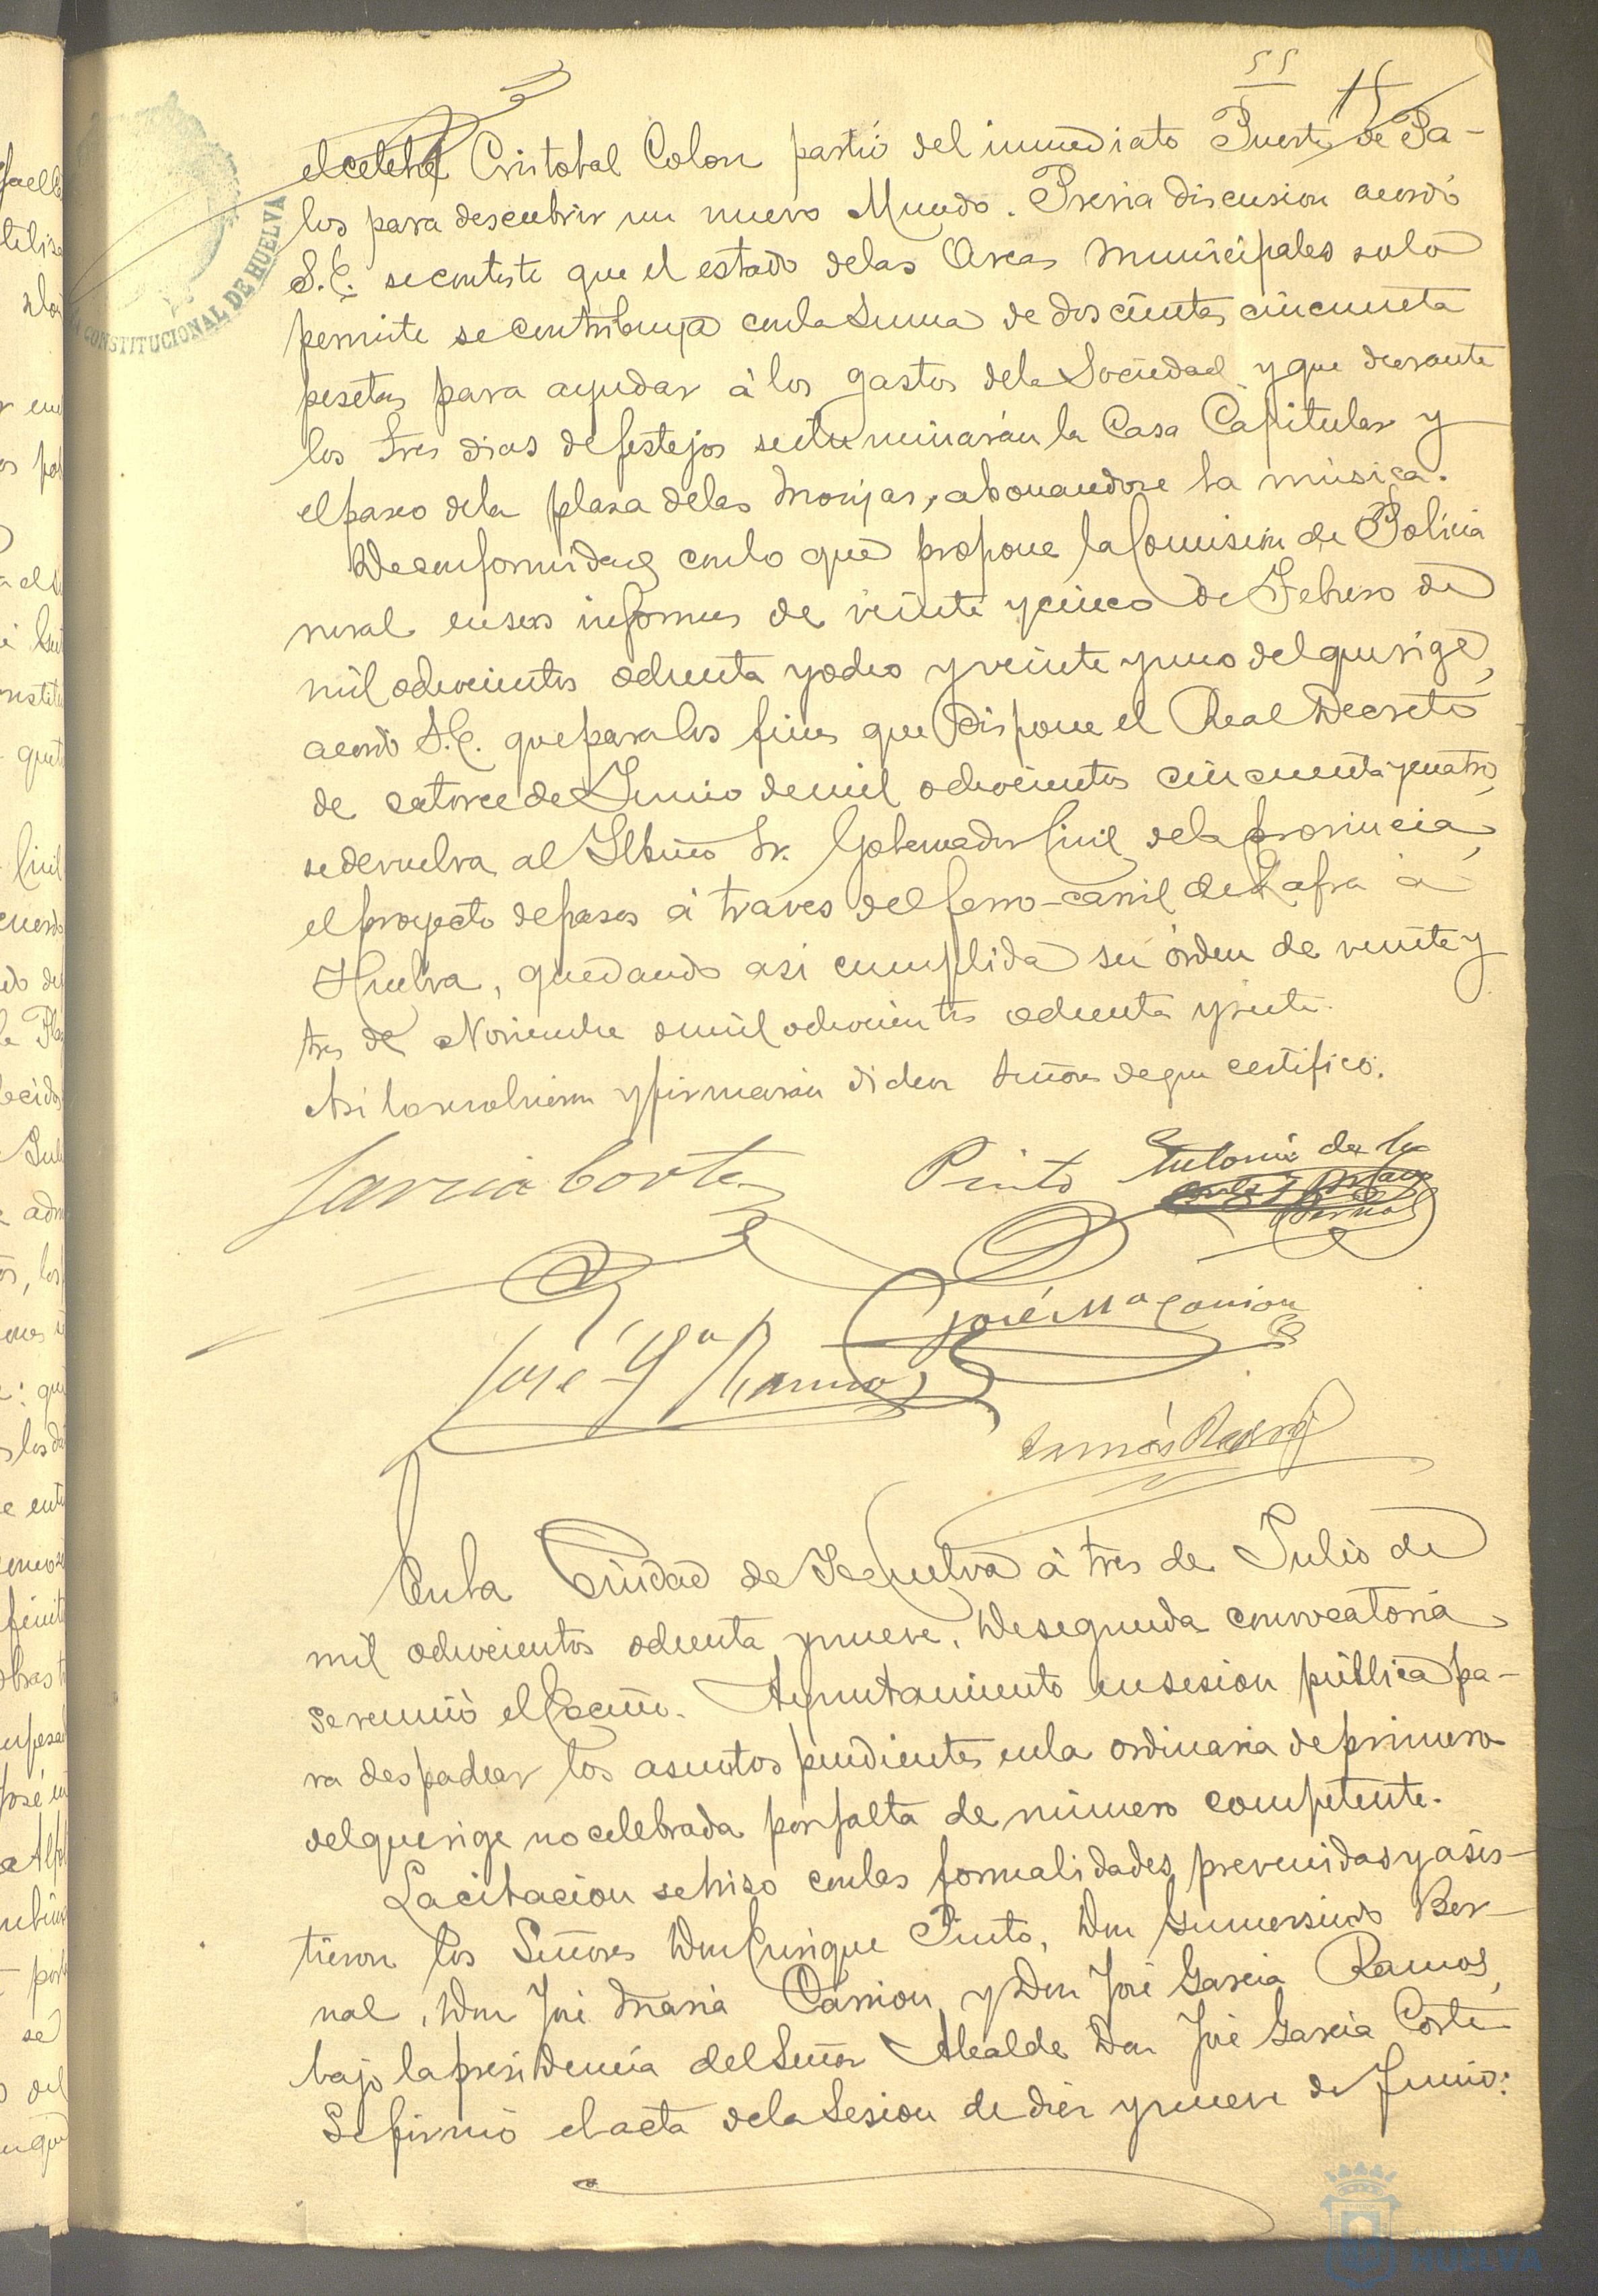 55
el celebre Cristobal Colon partió del inmediato Puerto de Pa-
los para descubrir un nuevo Mundo. Previa discusion acordó
S.E. se conteste que el estado de las Arcas Municipales solo
permite se contribuya con la suma de doscientas cincuenta
pesetas para ayudar à los gastos de la Sociedad y que durante
los tres dias de festejos se iluminarán la Casa Capitular y
el paseo de la plaza de las Monjas, abonandose la música.
De conformidad con lo que propone la Comision de Policia
rural en sus informes de veinte y cinco de Febrero de
mil ochocientos ochenta y ocho y veinte y uno del que rige,
acordó S.E. que para los fines que dispone el Real Decreto
de catorce de Junio de mil ochocientos cincuenta y cuatro,
se devuelva al Iltmo Sr. Gobernador Civil de la provincia,
el proyecto de pasos à traves del ferro-carril de Zafra à
Huelva, quedando asi cumplida su órden de veinte y
tres de Noviembre de mil ochocientos ochenta y siete.
Asi lo resolvieron y firmarán dichos Señores de que certifico.
Garcia Cortes
Pinto
Antonio de la
Corte y
José Mª Carrion
José Gª Ramos
Tomás
En la Ciudad de Huelva à tres de Julio de
mil ochocientos ochenta y nueve. De segunda convocatoria
se reunió el Excmo. Ayuntamiento en sesion pública pa-
ra despachar los asuntos pendientes en la ordinaria de primero
del que rige no celebrada por falta de número competente.
La citacion se hizo con las formalidades prevenidas y asis-
tieron los Señores Don Enrique Pinto, Don Gumersindo Ber-
nal, Don José Maria Carrion, y Don José Garcia Ramos,
bajo la presidencia del Señor Alcalde Don José Garcia Cortes
Se firmó el acta de la Sesion de diez y nueve de Junio:
CONSTITUCIONAL DE HUELVA
HUELVA